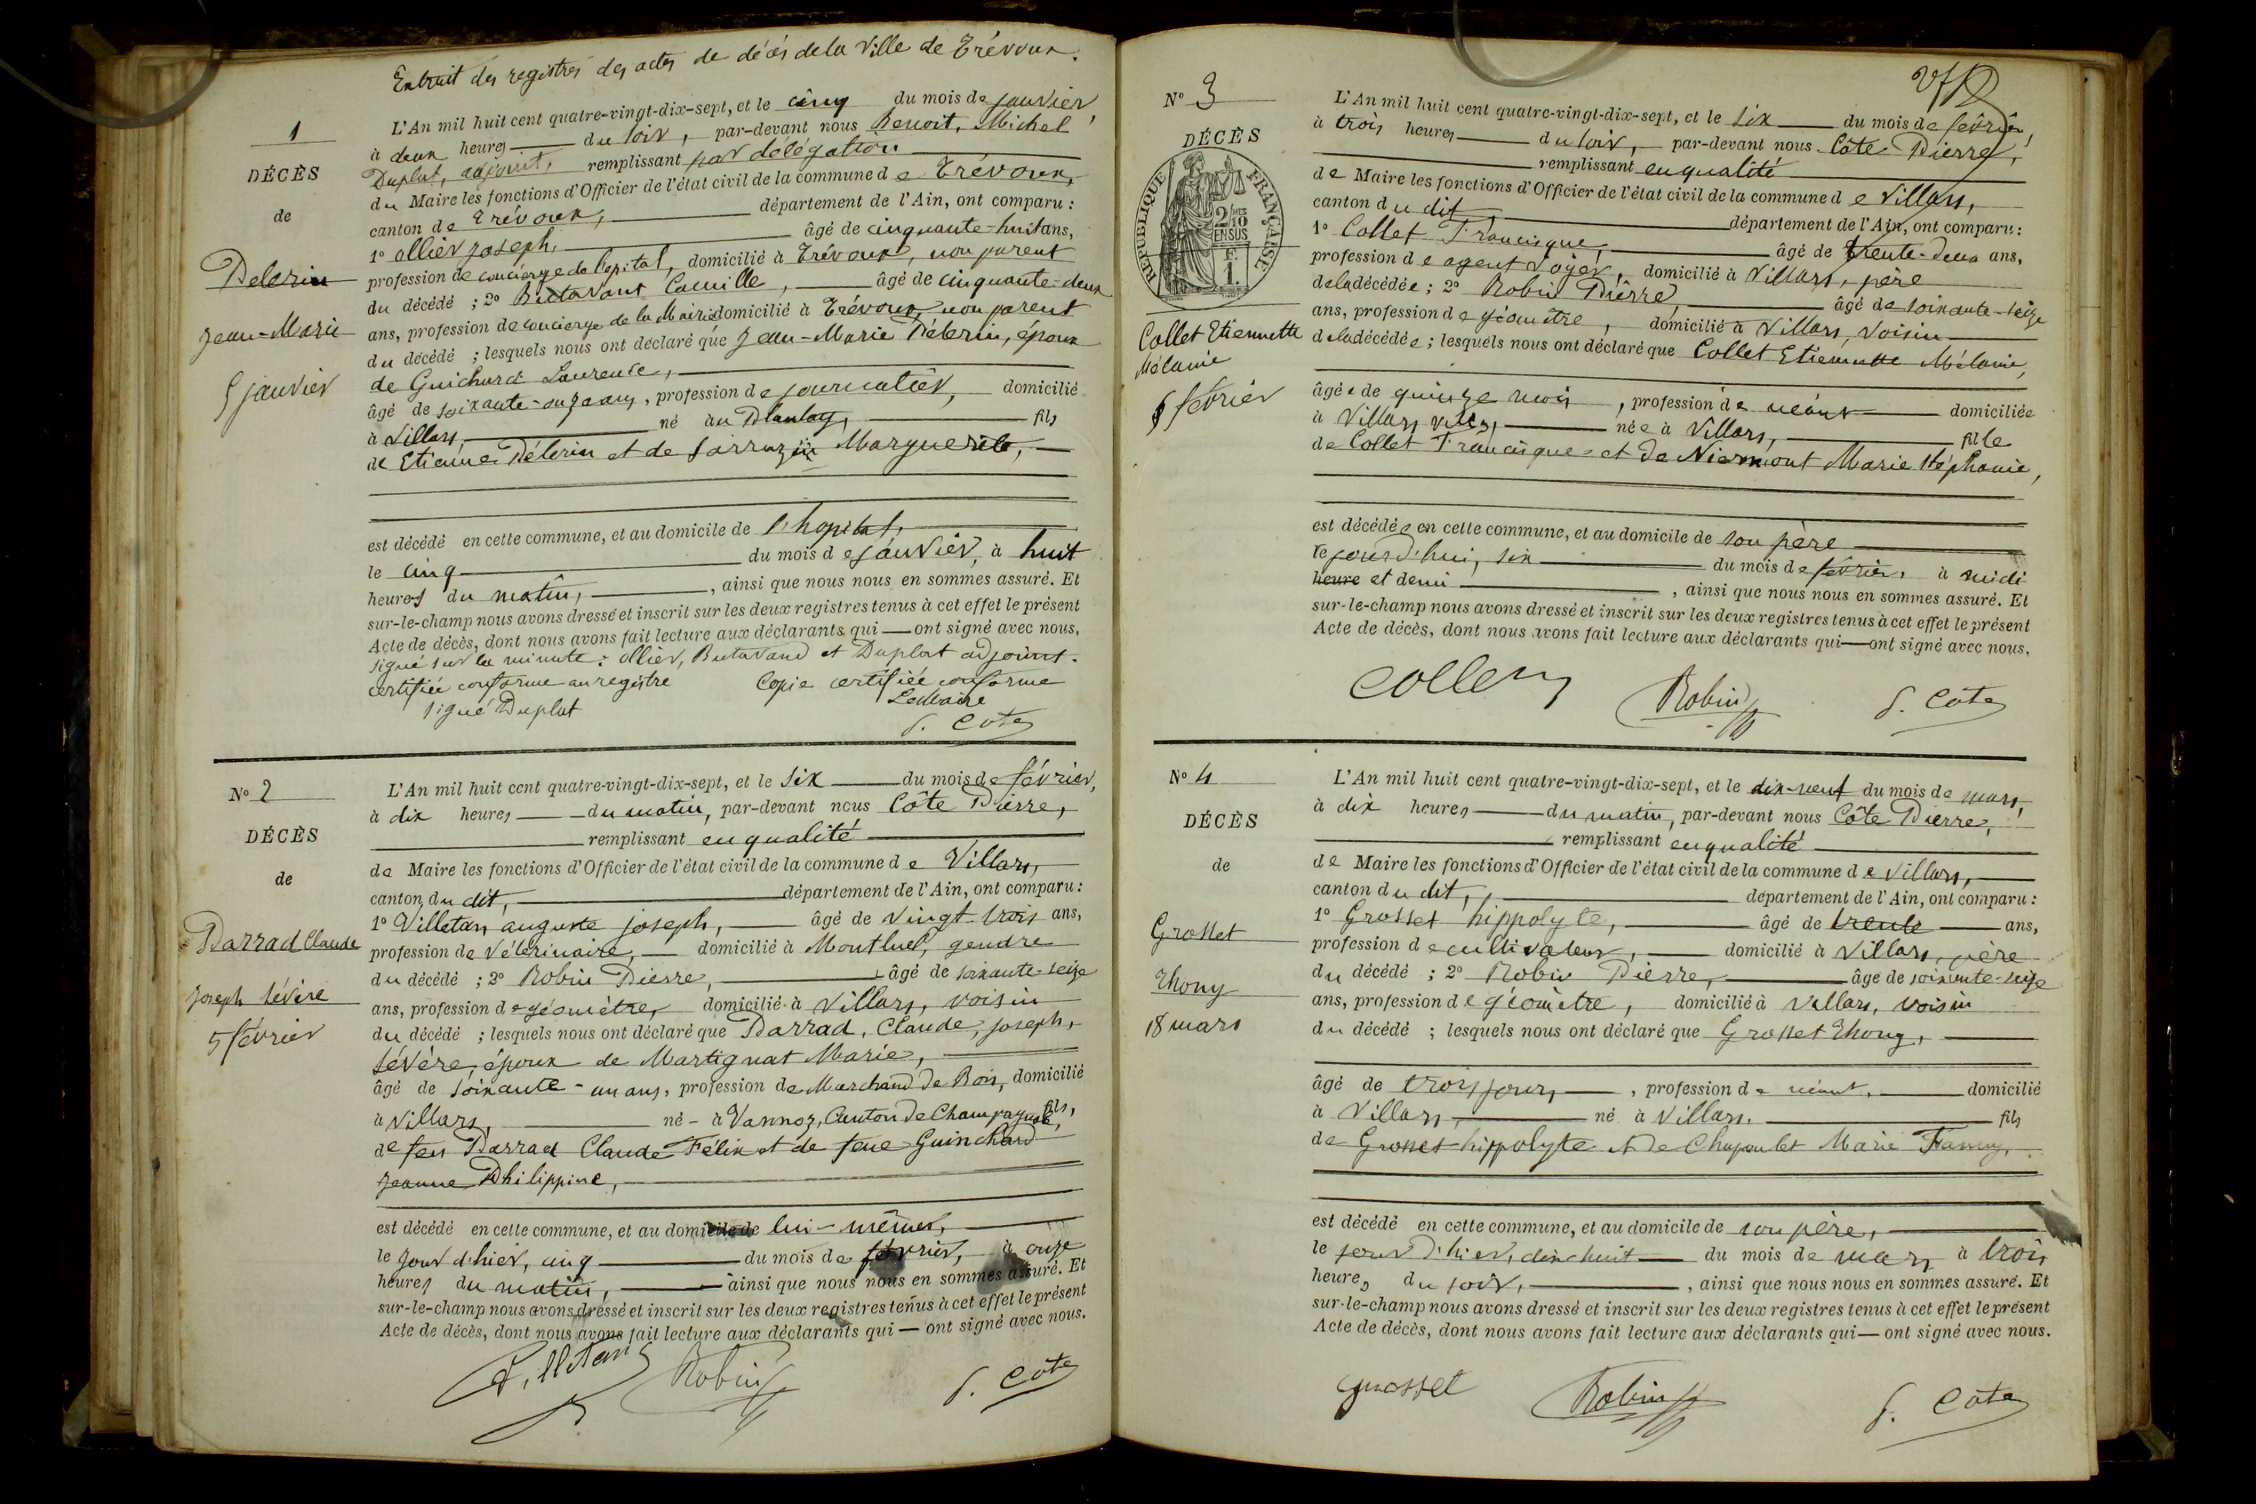 Extrait des registres des actes de décès de la Ville de Trévoux.
1
DÉCÈS
de
Pelerin
Jean-Marie
5 janvier
L'An mil huit cent quatre-vingt-dix-sept, et le cinq du mois de janvier,
à deux heures du soir, par-devant nous Benoit, Michel
Duplat, adjoint, remplissant par délégation
du Maire les fonctions d'Officier de l'état civil de la commune de Trévoux,
canton de Trévoux, département de l'Ain, ont comparu :
1° Ollier Joseph, âgé de cinquante-huit ans,
profession de concierge de l'hopital, domicilié à Trévoux, non parent
du décédé ; 2° Butavant Camille, âgé de cinquante-deux
ans, profession de concierge de la Mairie domicilié à Trévoux, non parent
du décédé ; lesquels nous ont déclaré que Jean-Marie Pélerin, époux
de Guichard Laurence,
âgé de soixante-onze ans, profession de journalier, domicilié
à Villars, né au Plantay, fils
de Etienne Pélerin et de Sarrazin Marguerite,
est décédé en cette commune, et au domicile de l'hopital,
le cinq du mois de janvier, à huit
heures du matin, ainsi que nous nous en sommes assuré. Et
sur-le-champ nous avons dressé et inscrit sur les deux registres tenus à cet effet le présent
Acte de décès, dont nous avons fait lecture aux déclarants qui — ont signé avec nous.
signé sur la minute : Ollier, Butavand et Duplat adjoint.
certifiée conforme au registre Copie certifiée conforme
signé Duplat Le Maire
P. Côte
N° 2
DÉCÈS
de
Barrad Claude
Joseph Sévère
5 février
L'An mil huit cent quatre-vingt-dix-sept, et le six du mois de février,
à dix heures du matin, par-devant nous Côte Pierre,
remplissant en qualité
de Maire les fonctions d'Officier de l'état civil de la commune de Villars,
canton du dit, département de l'Ain, ont comparu :
1° Villetan auguste joseph, âgé de vingt-trois ans,
profession de Vétérinaire, domicilié à Montluel, gendre
du décédé ; 2° Robin Pierre, âgé de soixante-seize
ans, profession de géomètre, domicilié à Villars, voisin
du décédé ; lesquels nous ont déclaré que Barrad, Claude, Joseph,
Sévère, époux de Martignat Marie,
âgé de soixante-un ans, profession de Marchand de Bois, domicilié
à Villars, né à Vannoz, Canton de Champagnole, fils,
de feu Barrad Claude Félix et de feue Guinchard
Jeanne Philippine,
est décédé en cette commune, et au domicile de lui-même,
le jour d'hier, cinq du mois de février, à onze
heures du matin, ainsi que nous nous en sommes assuré. Et
sur-le-champ nous avons dressé et inscrit sur les deux registres tenus à cet effet le présent
Acte de décès, dont nous avons fait lecture aux déclarants qui — ont signé avec nous.
Robin P. Côte
N° 3
DÉCÈS
RÉPUBLIQUE FRANÇAISE
2/10 EN SUS
F. 1.
Collet Etiennette
Mélanie
6 février
L'An mil huit cent quatre-vingt-dix-sept, et le six du mois de février,
à trois heures du soir, par-devant nous Côte Pierre,
remplissant en qualité
de Maire les fonctions d'Officier de l'état civil de la commune de Villars,
canton du dit département de l'Ain, ont comparu :
1° Collet Francisque, âgé de trente-deux ans,
profession de agent voyer, domicilié à Villars, père
de la décédée ; 2° Robin Pierre, âgé de soixante-seize
ans, profession de géomètre, domicilié à Villars, voisin
de la décédée ; lesquels nous ont déclaré que Collet Etiennette Mélanie,
âgée de quinze mois, profession de néant domiciliée
à Villars, née à Villars, fille
de Collet Francisque et de Niermont Marie Stéphanie,
est décédée en cette commune, et au domicile de son père
le jourd'hui, six du mois de février, à midi
heure et demi, ainsi que nous nous en sommes assuré. Et
sur-le-champ nous avons dressé et inscrit sur les deux registres tenus à cet effet le présent
Acte de décès, dont nous avons fait lecture aux déclarants qui — ont signé avec nous.
Collet Robin P. Côte
N° 4
DÉCÈS
de
Grosset
Thony
18 mars
L'An mil huit cent quatre-vingt-dix-sept, et le dix-neuf du mois de mars,
à dix heures du matin, par-devant nous Côte Pierre,
remplissant en qualité
de Maire les fonctions d'Officier de l'état civil de la commune de Villars,
canton du dit, département de l'Ain, ont comparu :
1° Grosset hippolyte, âgé de trente ans,
profession de cultivateur, domicilié à Villars, père
du décédé ; 2° Robin Pierre, âgé de soixante-seize
ans, profession de géomètre, domicilié à Villars, voisin
du décédé ; lesquels nous ont déclaré que Grosset Thony,
âgé de trois jours, profession de néant, domicilié
à Villars, né à Villars, fils
de Grosset hippolyte et de Chapoulet Marie Fanny,
est décédé en cette commune, et au domicile de son père,
le jour d'hier, dix huit du mois de mars à trois
heures du soir, ainsi que nous nous en sommes assuré. Et
sur-le-champ nous avons dressé et inscrit sur les deux registres tenus à cet effet le présent
Acte de décès, dont nous avons fait lecture aux déclarants qui — ont signé avec nous.
Grosset Robin P. Côte